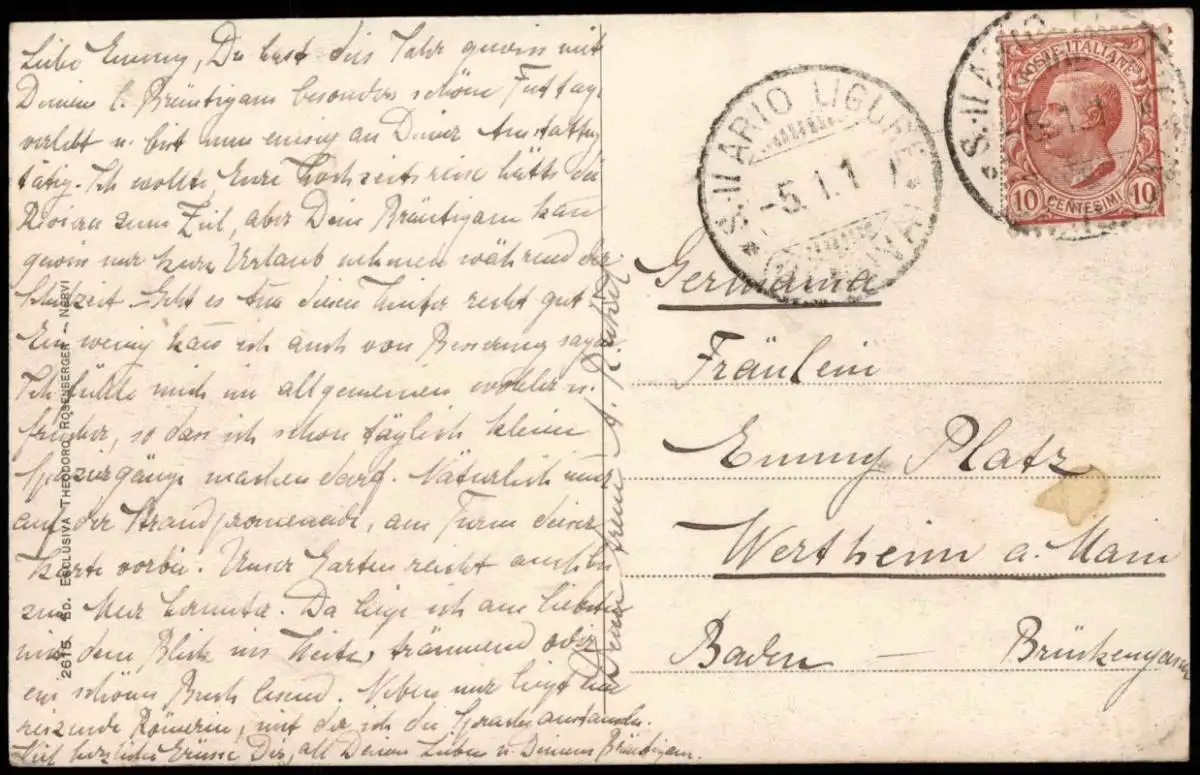 Liebe Emmy, Du hast dies Jahr gewiss mit
Deinem l. Bräutigam besonders schöne Festtage
verlebt u. bist nun eifrig an Deiner Ausstattg
tätig. Ich wollte, Eure Hochzeitsreise hätte die
Riviera zum Ziel, aber Dein Bräutigam kan
gewiss nur kurze Urlaub nehmen während der
Schulzeit. Geht es ihm diesen Winter recht gut
Ein wenig kan ich auch von Besserung sagen
Ich fühle mich im allgemeinen wohler u.
frischer, so dass ich schon täglich kleine
Spaziergänge machen darf. Natürlich nur
auf der Strandpromenade, am Turm dieser
Karte vorbei. Unser Garten reicht auch bis
zum Meer herunter. Da liege ich am liebsten
mit dem Blick ins Weite, träumend oder
ein schönes Buch lesend. Neben mir liegt eine
reizende Römerin, mit der ich die Sprachen austausche.
Viel herzliche Grüsse Dir, all Deinen Lieben u. Deinem Bräutigam.
Deine treue A.
2615 ED. ESCLUSIVA THEODORO ROSENBERGER - NERVI
S. ILARIO LIGURE
-5.1.1
POSTE ITALIANE
10 CENTESIMI 10
S. ILARIO
Germania
Fräulein
Emmy Platz
Wertheim a. Main
Baden — Brückengasse